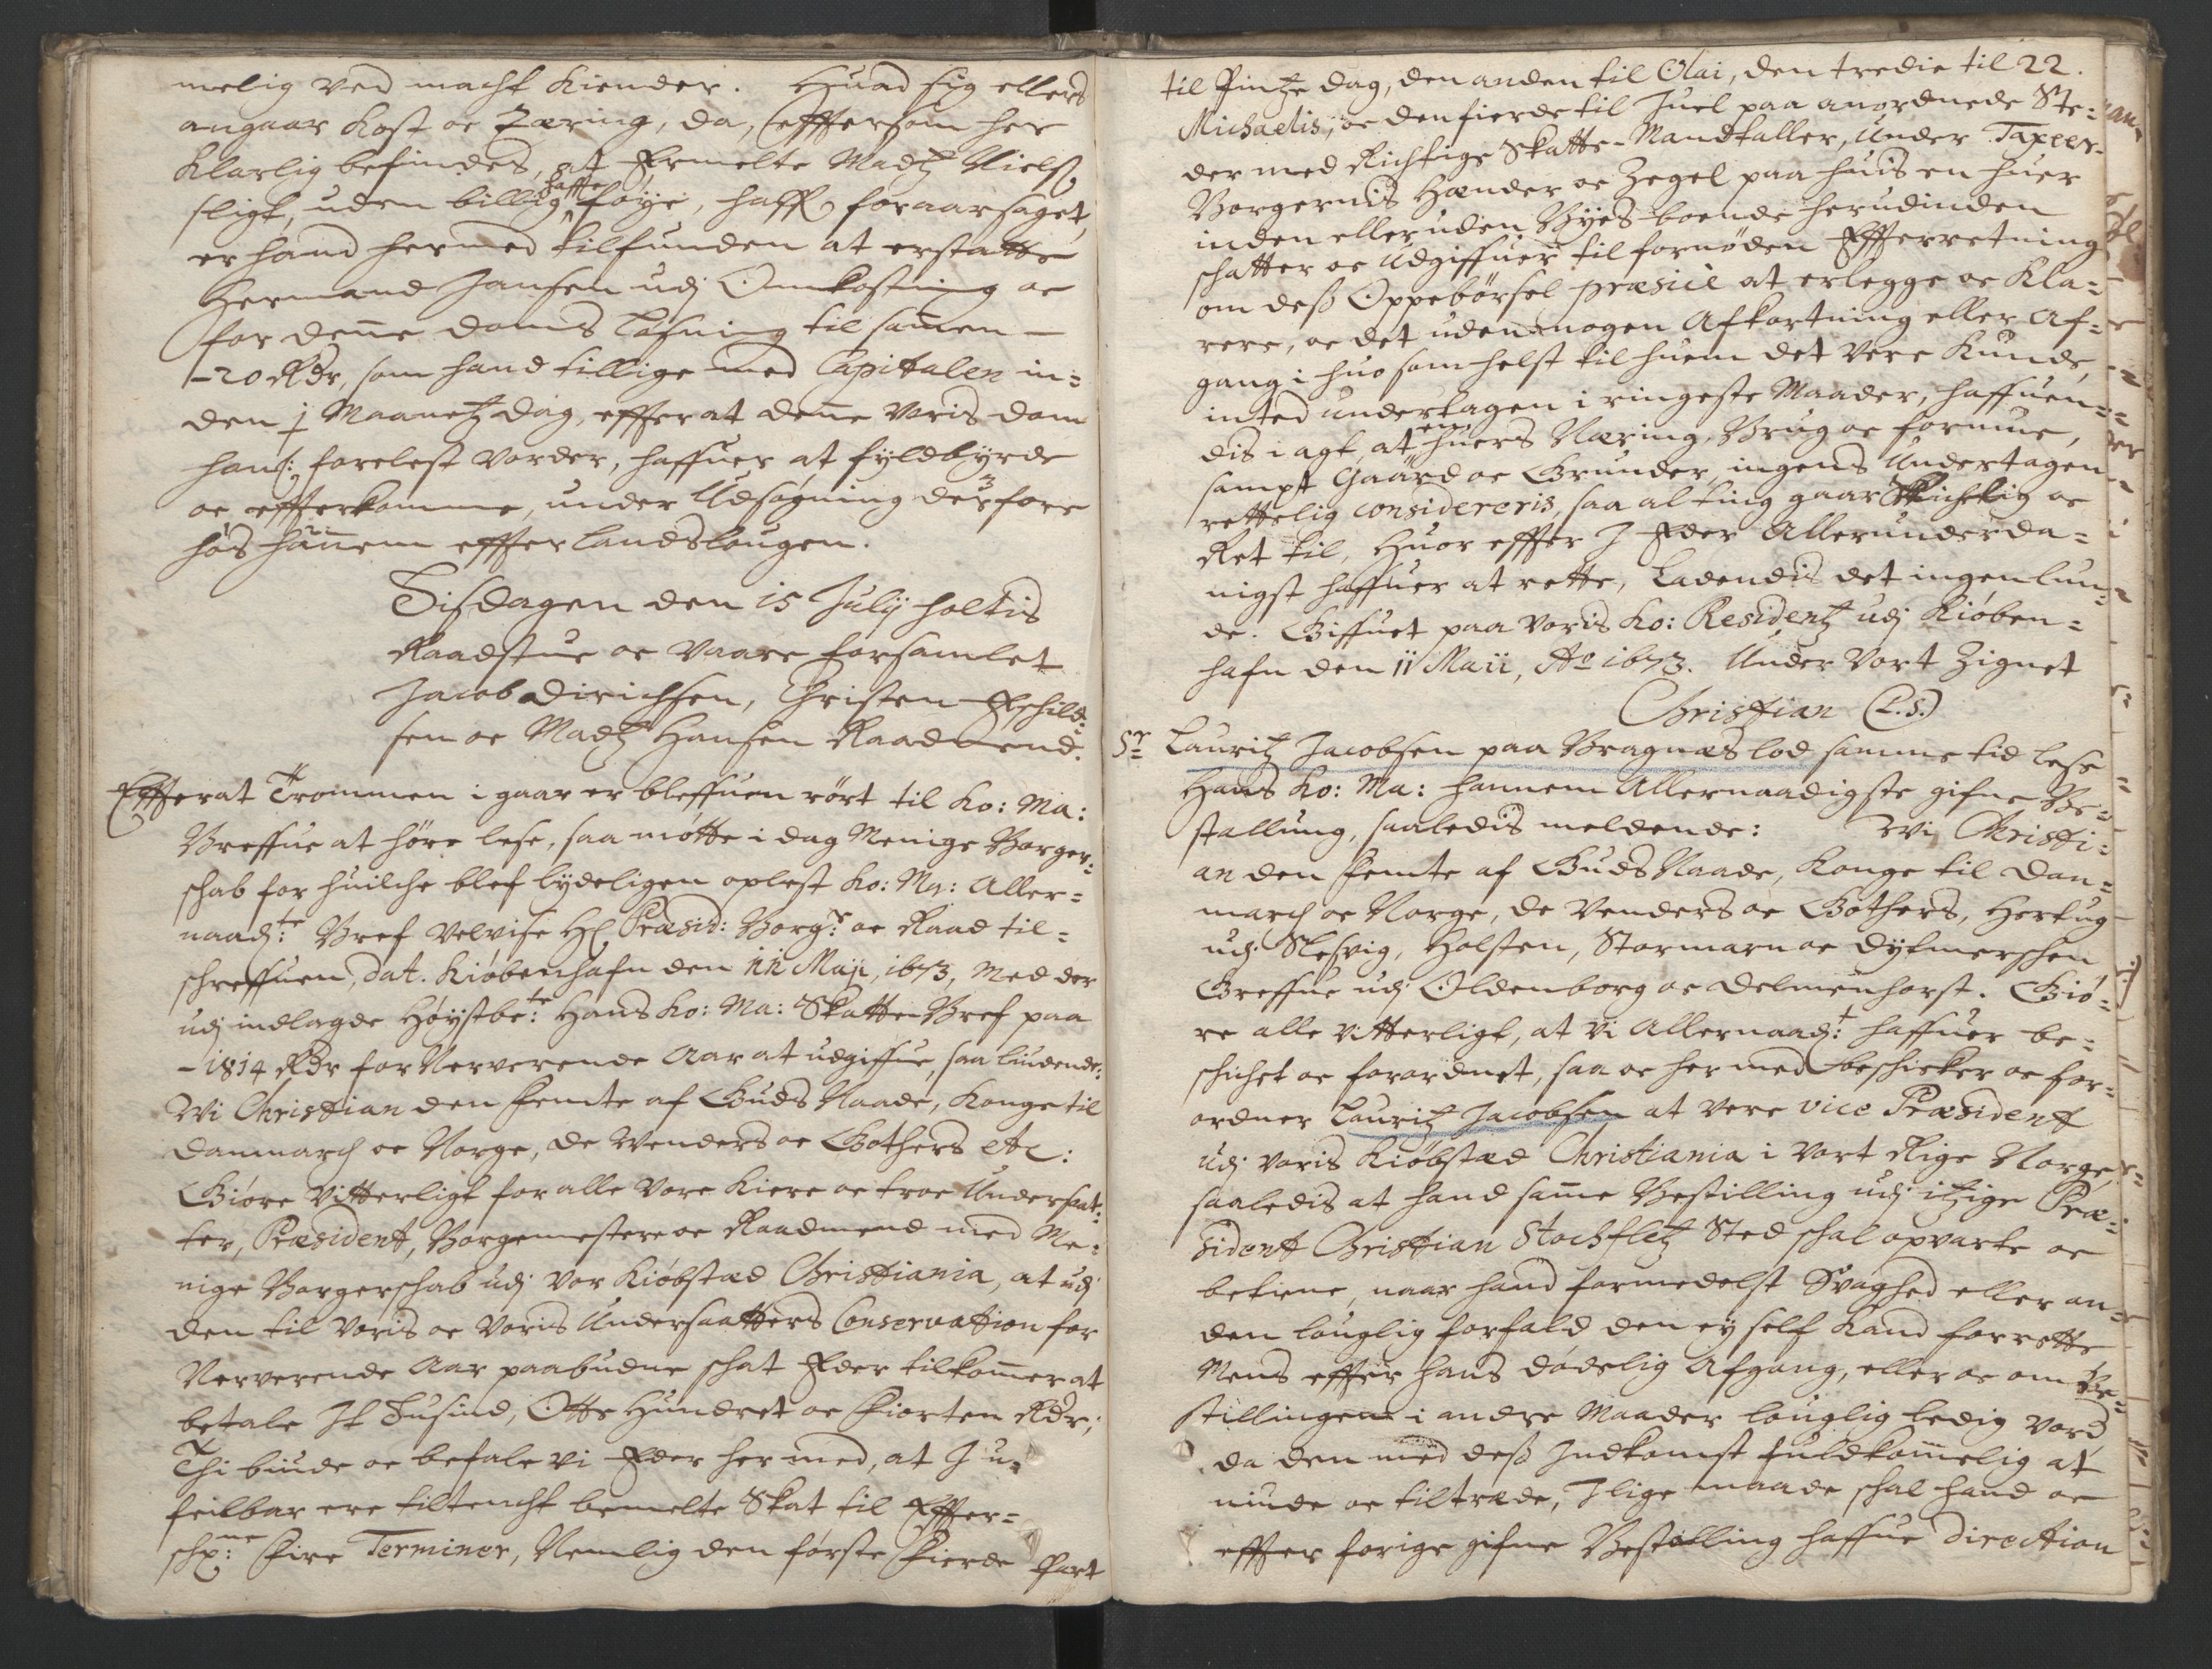 melig ved macht kiender. Huad sig ellers
angaar kost oc Tæring, da, effttersom her
klarlig befindes, at Ermelte Madz Nielss.
sligt, uden billig haffte føye, haffr foraarsaget,
er hand hermed tilfunden at erstatte
Hermand Jansen udj Omkostning oc
for denne doms løsning til samen —
- 20 Rdr, som hand tillige med Capitalen in=
den j Maanetz dag, effter at denne voris dom
hans: forelest vorder, haffuer at fyldbyrde
oc effterkomme, under Udsøgning derfore
hos hannem effter landslougen.
Tisdagen den 15 Julij holtis
Raadstue oc vaare forsamlet
Jacob dirichsen, Christen Eschild=
sen oc Madz Hansen Raadmend.
Effterat Trommen i gaar er bleffuen rört til Ko: Ma:
Breffue at höre lese, saa møtte i dag Menige Borger=
schab for huilche blef lydeligen oplest Ko: Ma: Aller=
naad:te Bref velvise Hl Præsid: Borg:r oc Raad til=
schreffuen, dat. Kiøbenhafn den 11 Maji, 1673, Med der
udj indlagde Høystbe:te Hans Ko: Ma: Skatte-Bref paa
- 1814 Rdr for Nerverende Aar at udgiffue, saa liudende:
Wi Christian den femte af Guds Naade, Konge til
Danmarch oc Norge, de Wenders oc Gothers etc:
Giøre vitterligt for alle vore kiere oc troe Undersaat=
ter, Præsident, Borgemestere oc Raadmend med Me=
nige Borgerschab udj vor kiøbstæd Christiania, at udj
den til voris oc voris Undersaatters Conservation for
Nerverende Aar paabudne schat Eder tilkommer at
betale It Tusind, Otte Hundret oc fiorten Rdr;
Thi biude oc befale vi Eder her med, at J u=
feilbar ere tiltencht bemelte Skat til Effter=
schr:ne fire Terminer, Nemlig den første fierde Part
til Pintze dag, den anden til Olai, den tredie til 22.
Michaelis, oc den fierde til Juel paa anordnede Ste=
der med Richtige Skatte-Mandtaller, under Taxeer=
Borgernis Hænder oc Zegel paa huis en huer
inden eller uden Byes boende herudinden
schatter oc udgiffuer til fornøden Effterretning
om dess Oppebörsel præsice at erlegge oc kla=
rere, oc det uden nogen Afkortning eller Af=
gang i huo somhelst til huem det vere kunde,
inted undertagen i ringeste Maader, haffuen=
dis i agt, at en huers Næring, Brug oc formue,
sampt Gaard oc Grunder, ingens Undertagen
rettelig considereris, saa alting gaar Richtig oc
Ret til, Huor effter J Eder Allerunderda=
nigst haffuer at rette, Ladendis det ingenlun=
de. Giffuet paa voris Ko: Residentz udj Kiøben=
hafn den 11 Maii, Ao 1673. Under vort Zignet
Christian (L.S.)
Sr Lauritz Jacobsen paa Bragnæs lod samme tid lese
Hans Ko: Ma: hannem Allernaadigste gifne Be=
stallung, saaledis meldende: Wi Christi=
an den femte af Guds Naade, Konge til Dan=
march oc Norge, de Venders oc Gothers, Hertug
udj Slesvig, Holsten, Stormarn oc Dytmerschen
Greffue udj Oldenborg oc Delmenhorst. Giö=
re alle vitterligt, at vi Allernaad:t haffuer be=
schichet oc forordnet, saa oc her med beschicker oc for=
ordner Lauritz Jacobsen at vere vice Præsident
udj voris kiöbstæd Christiania i vort Rige Norge,
saaledis at hand samme Bestilling udj itzige Præ=
sident Christian Stochfletz Sted schal opvarte oc
betiene, naar hand formedelst Svaghed eller an=
den louglig forfald den ey self kand forrette
Mens effter hans dødelig Afgang, eller oc om Be=
stillingen i andre Maader louglig ledig vord
da den med dess Indkomst fuldkommelig at
niude oc tiltræde, Ilige maade schal hand oc
effter forige gifne Bestalling haffue direction